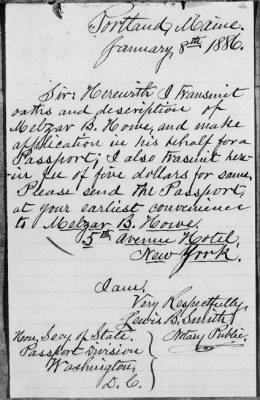 Portland, Maine.
January, 8th 1886.
Sir: Herewith I transmit
oaths and description of
Melzar B. Howe, and make
application in his behalf for a
Passport; I also trasmit here-
in fee of five dollars for same.
Please send the Passport,
at your earliest convenience
to Melzar B. Howe,
5th Avenue Hotel,
New York.
I am,
Very Respectfully,
Lewis B. Smith
Notary Public.
Hon. Secy. of State.
Passport Division
Washington,
D. C.